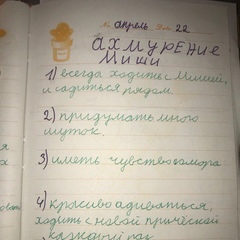 No апрель Date 22
Охмурение
Миши
1) всегда ходить с Мишей,
и садиться рядом.
2) придумать много
шуток.
3) иметь чувство юмора
4) красиво одиваться,
ходить с новой причёской
каждый раз